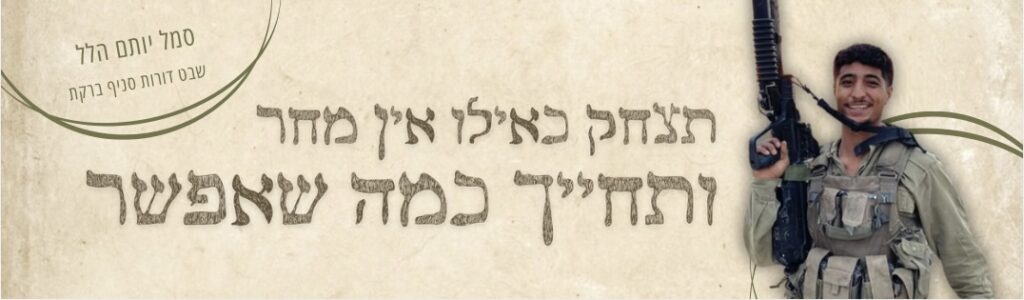 סמל יותם הלל
שבט דורות סניף ברקת
תצחק כאילו אין מחר
ותחייך כמה שאפשר